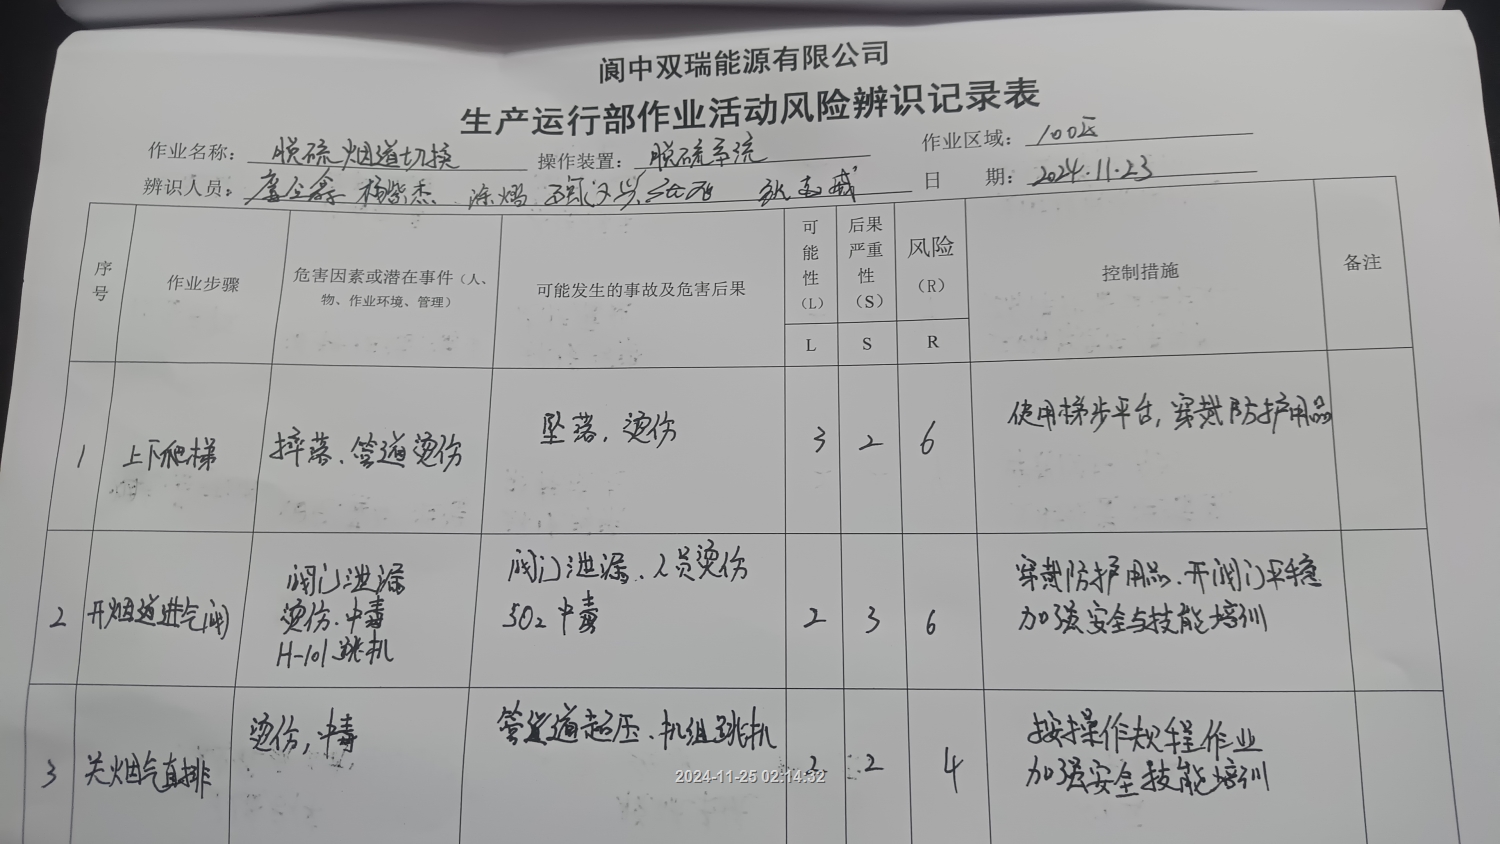 阆中双瑞能源有限公司
生产运行部作业活动风险辨识记录表
作业名称： 脱硫烟道切换 操作装置： 脱硫系统 作业区域： 100区
辨识人员： 杨紫杰 涂熠 日 期： 2024.11.23
序号 作业步骤 危害因素或潜在事件（人、物、作业环境、管理） 可能发生的事故及危害后果 可能性（L） 后果严重性（S） 风险（R） 控制措施 备注
L S R
1 上下爬梯 摔落、管道烫伤 坠落，烫伤 3 2 6 使用梯步平台，穿戴防护用品
2 开烟道进气阀 阀门泄漏 烫伤、中毒 H-101跳机 阀门泄漏、人员烫伤 SO2中毒 2 3 6 穿戴防护用品、开阀门平稳 加强安全与技能培训
3 关烟气直排 烫伤，中毒 管道超压、机组跳机 2 2 4 按操作规程作业 加强安全技能培训
2024-11-25 02:14:32